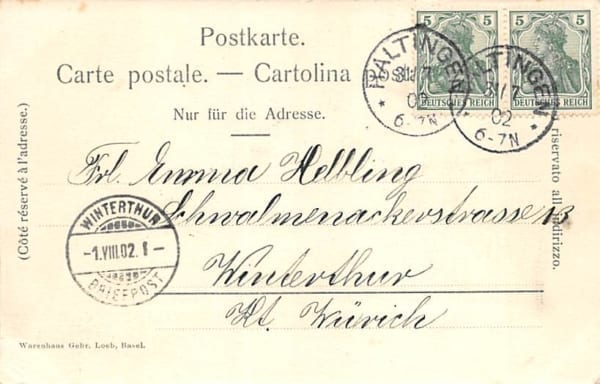 Postkarte.
Carte postale. — Cartolina
Nur für die Adresse.
5 5
DEUTSCHES REICH
5 5
DEUTSCHES REICH
HALTINGEN
31/7
02
6-7N
HALTINGEN
31/7
02
6-7N
(Côté réservé à l'adresse.)
riservato all' indirizzo.
Frl. Emma Helbling
Schwalmenackerstrasse 13
Winterthur
Kt. Zürich
WINTERTHUR
-1.VIII.02. 1 -
BRIEFPOST
Warenhaus Gebr. Loeb, Basel.